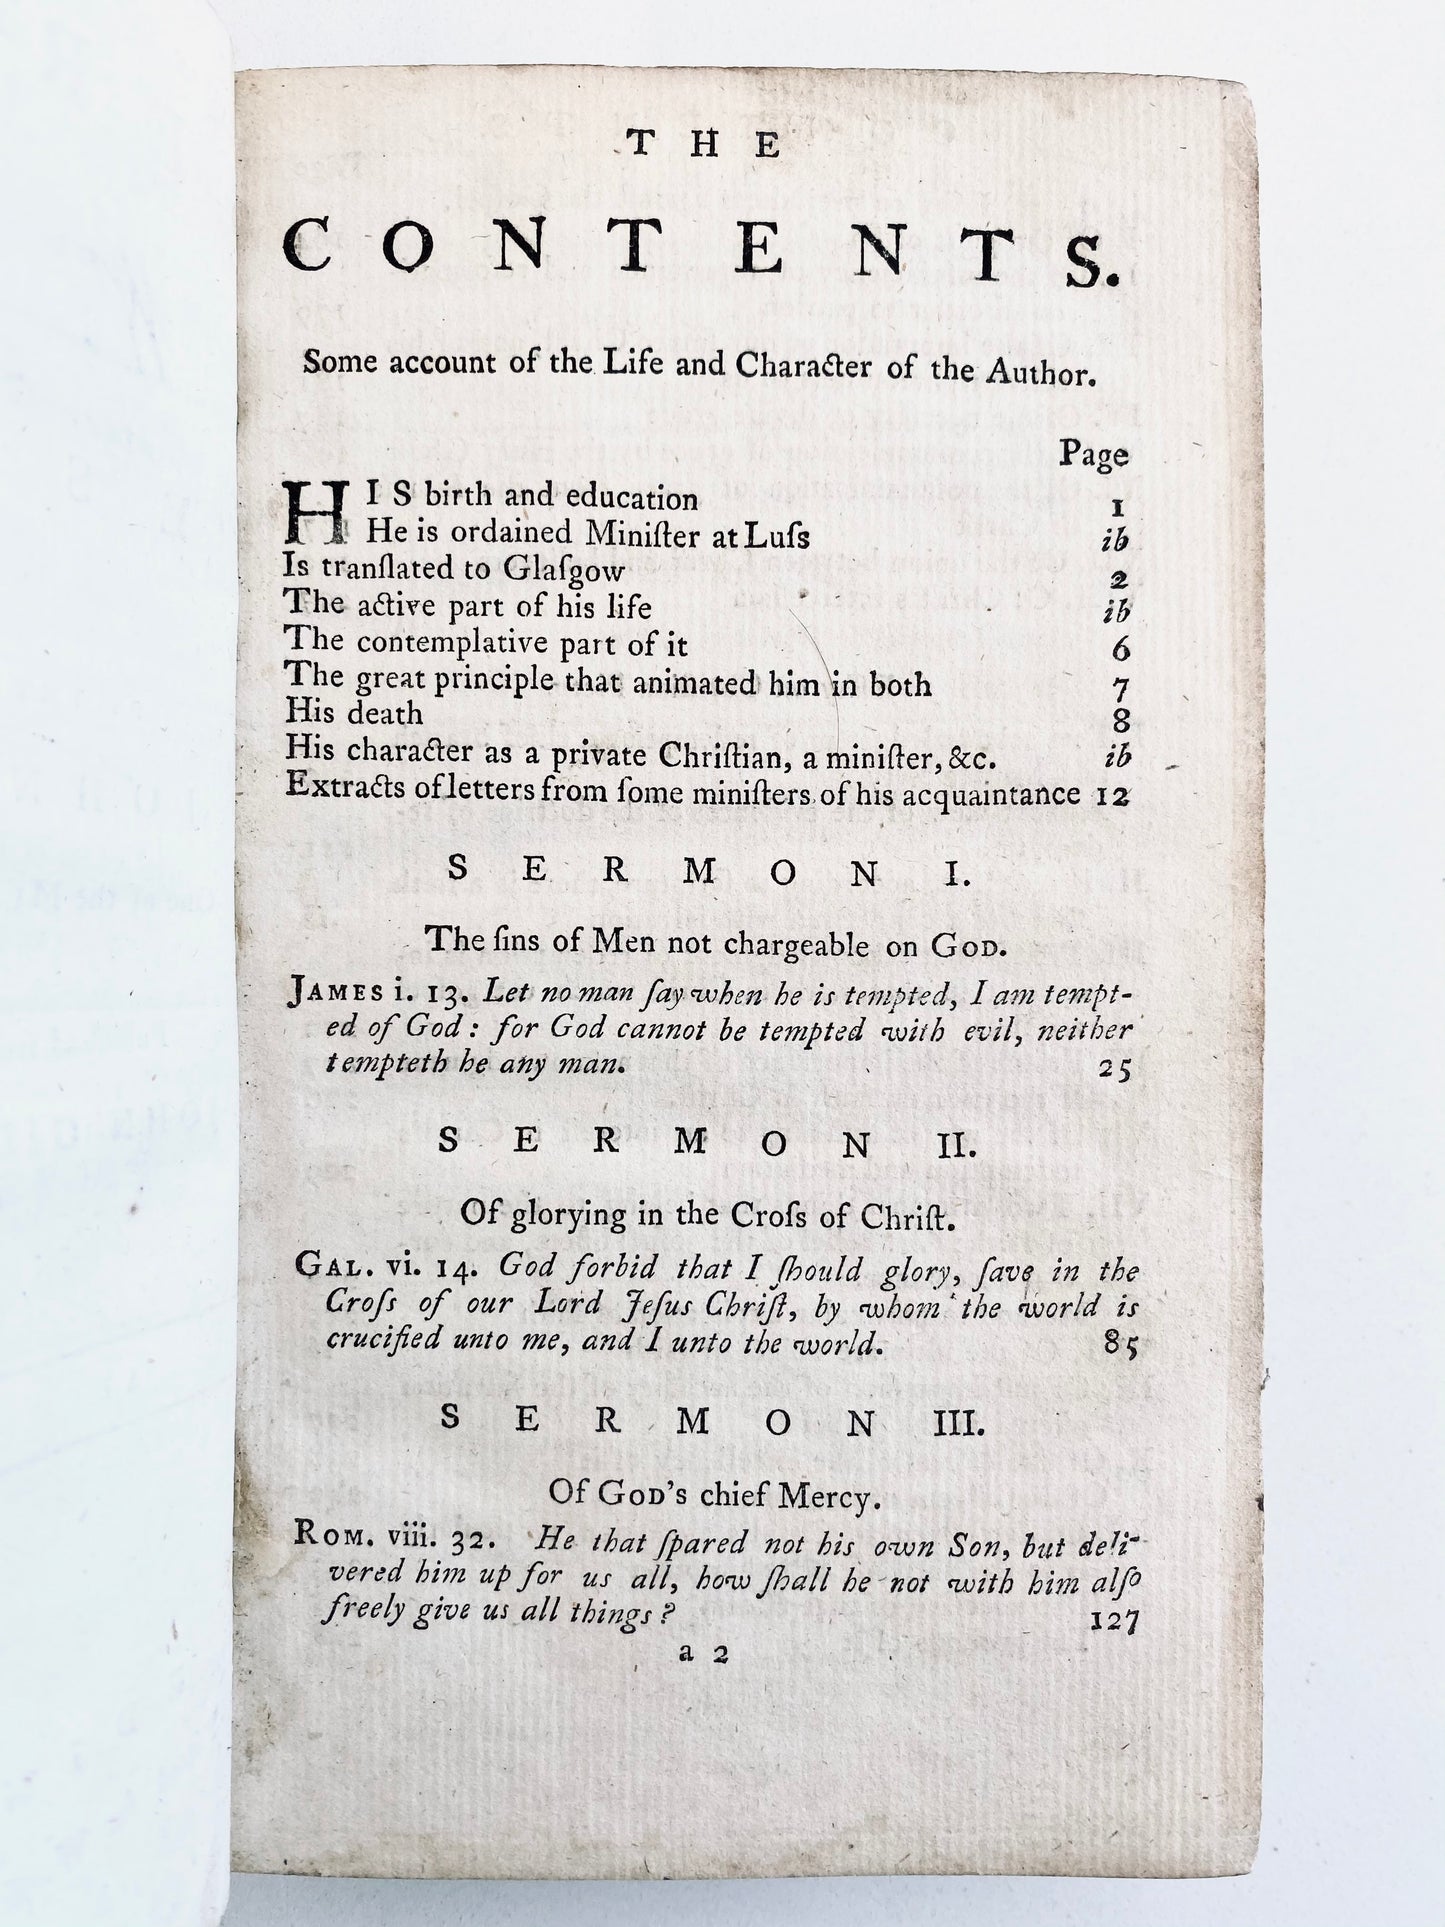 THE
CONTENTS.
Some account of the Life and Character of the Author.
Page
HIS birth and education 1
He is ordained Miniſter at Luſs ib
Is tranſlated to Glaſgow 2
The active part of his life ib
The contemplative part of it 6
The great principle that animated him in both 7
His death 8
His character as a private Chriſtian, a miniſter, &c. ib
Extracts of letters from ſome miniſters of his acquaintance 12
SERMON I.
The ſins of Men not chargeable on GOD.
JAMES i. 13. Let no man ſay when he is tempted, I am tempt-
ed of God: for God cannot be tempted with evil, neither
tempteth he any man. 25
SERMON II.
Of glorying in the Croſs of Chriſt.
GAL. vi. 14. God forbid that I ſhould glory, ſave in the
Croſs of our Lord Jeſus Chriſt, by whom the world is
crucified unto me, and I unto the world. 85
SERMON III.
Of GOD'S chief Mercy.
ROM. viii. 32. He that ſpared not his own Son, but deli-
vered him up for us all, how ſhall he not with him alſo
freely give us all things? 127
a 2